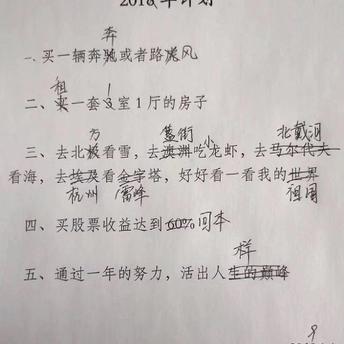 2018年计划
奔
一、买一辆奔驰或者路虎风
租 1
二、买一套3室1厅的房子
方 簋街 小 北戴河
三、去北极看雪，去澳洲吃龙虾，去马尔代夫
看海，去埃及看金字塔，好好看一看我的世界
杭州 雷峰 祖国
四、买股票收益达到60%回本
样
五、通过一年的努力，活出人生的巅峰
9